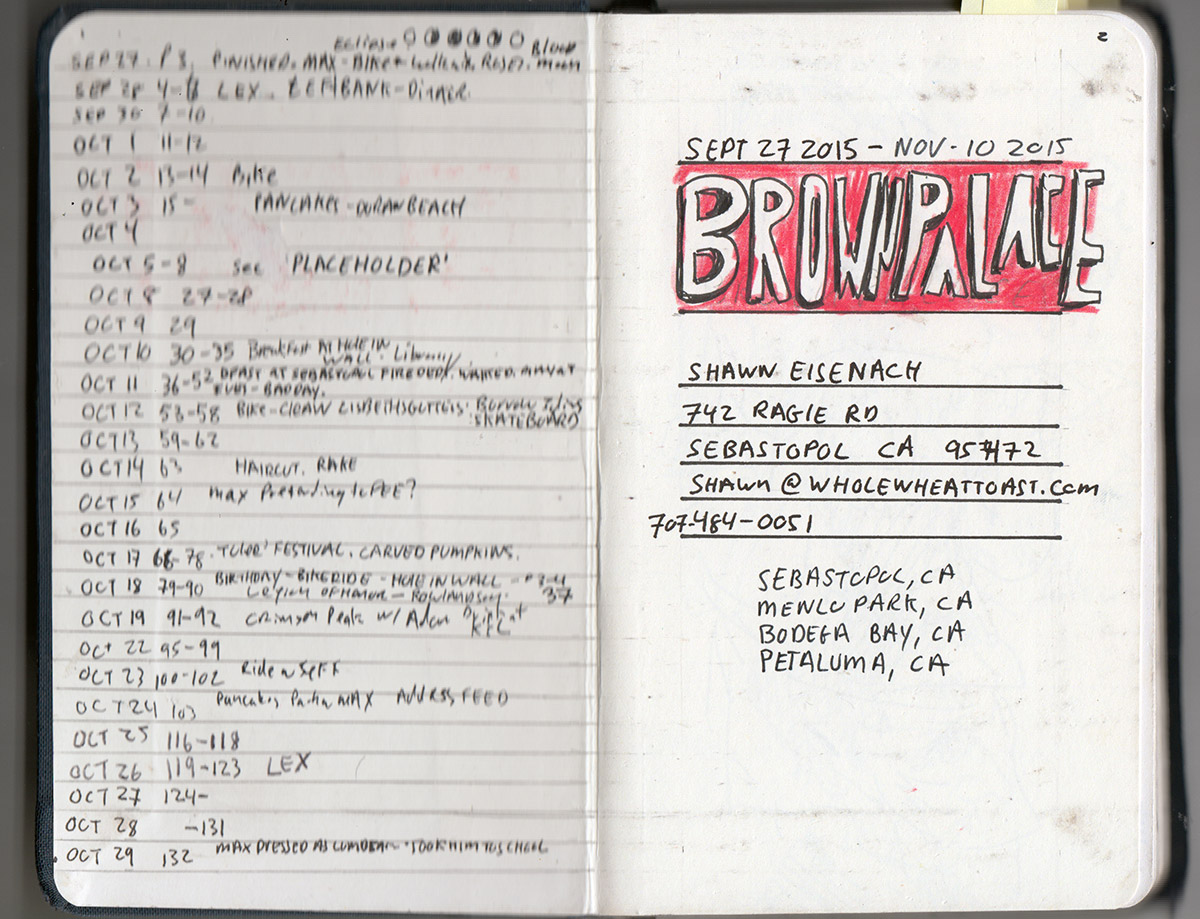 Eclipse Blood
SEP 27 P 3 FINISHED. MAX - BIKE moon
SEP 28 4-6 LEX LEFTBANK - DINNER
SEP 30 7-10
OCT 1 11-12
OCT 2 13-14 Bike
OCT 3 15- PANCAKES - DORAN BEACH
OCT 4
OCT 5-8 see 'PLACEHOLDER'
OCT 8 27-28
OCT 9 29
OCT 10 30-35 Breakfast At HOLE IN
WALL. Library
OCT 11 36-52 BFAST AT SEBASTOPOL FIRE DEPT.
- BAD DAY.
OCT 12 53-58 BIKE -
SKATEBOARD
OCT 13 59-62
OCT 14 63 HAIRCUT. RAKE
OCT 15 64 MAX Pretending to PEE?
OCT 16 65
OCT 17 66-78. FESTIVAL. CARVED PUMPKINS.
OCT 18 79-90 BIRTHDAY - BIKERIDE - HOLE IN WALL -
Legion OF HONOR - ROWLANDSON. 37
OCT 19 91-92 CRIMSON Peak w/ Adam
Oct 22 95-99
OCT 23 100-102 Ride w Jeff
OCT 24 103 Pancakes MAX ADDRESS FEED
OCT 25 116-118
OCT 26 119-123 LEX
OCT 27 124-
OCT 28 -131
OCT 29 132 MAX DRESSED AS - TOOK HIM TO SCHOOL
2
SEPT 27 2015 - NOV. 10 2015
BROWN PALACE
SHAWN EISENACH
742 RAGLE RD
SEBASTOPOL CA 95472
SHAWN @ WHOLEWHEATTOAST.com
707-484-0051
SEBASTOPOL, CA
MENLO PARK, CA
BODEGA BAY, CA
PETALUMA, CA